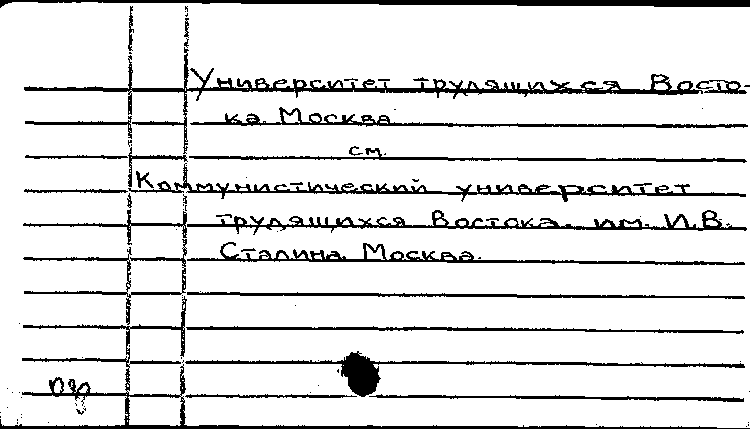 Университет трудящихся Восто-
ка. Москва
см.
Коммунистический университет
трудящихся Востока. им. И.В.
Сталина. Москва.